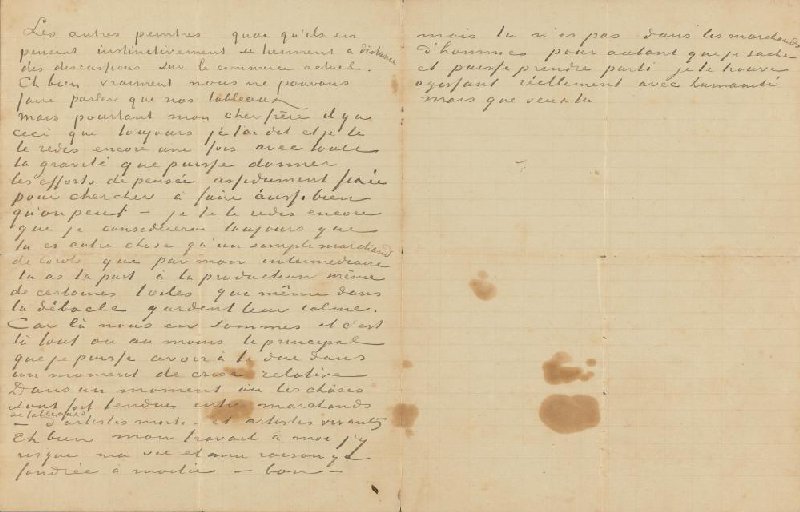 Les autres peintres quoi qu'ils en
pensent instinctivement se tiennent à distance
des discussions sur le commerce actuel.
Eh bien vraiment nous ne pouvons
faire parler que nos tableaux
mais pourtant mon cher frère il y a
ceci que toujours je t'ai dit et je te
le redis encore une fois avec toute
la gravité que puisse donner
les efforts de pensée assidument fixée
pour chercher à faire aussi bien
qu'on peut – je te le redis encore
que je considérerai toujours que
tu es autre chose qu'un simple marchand
de Corots que par mon intermédiaire
tu as ta part à la production même
de certaines toiles qui même dans
la débacle gardent leur calme.
Car là nous en sommes et c'est
là tout ou au moins le principal
que je puisse avoir à te dire dans
un moment de crise relative
Dans un moment où les choses
sont fort tendues entre marchands
de tableaux
– d'artistes morts – et artistes vivants
Eh bien mon travail à moi j'y
risque ma vie et ma raison y a
fondrée à moitié – bon –
mais tu n'es pas dans les marchands
d'hommes pour autant que je sache
et puisse prendre parti je le trouve
agissant réellement avec humanité
mais que veux tu